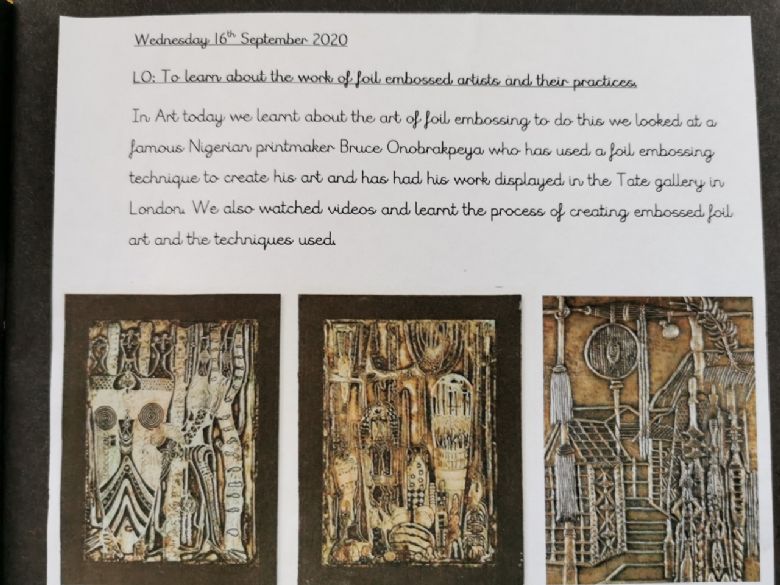 Wednesday 16th September 2020
LO: To learn about the work of foil embossed artists and their practices.
In Art today we learnt about the art of foil embossing to do this we looked at a
famous Nigerian printmaker Bruce Onobrakpeya who has used a foil embossing
technique to create his art and has had his work displayed in the Tate gallery in
London. We also watched videos and learnt the process of creating embossed foil
art and the techniques used.